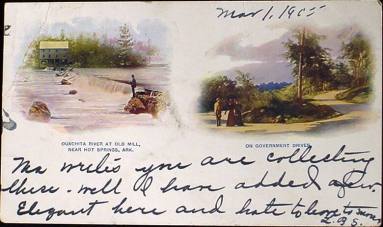 Mar 1, 1905
OUACHITA RIVER AT OLD MILL,
NEAR HOT SPRINGS, ARK.
ON GOVERNMENT DRIVE.
Ma writes you are collecting
these - well I have added a few.
Elegant here and hate to leave to-morrow
L.B.S.